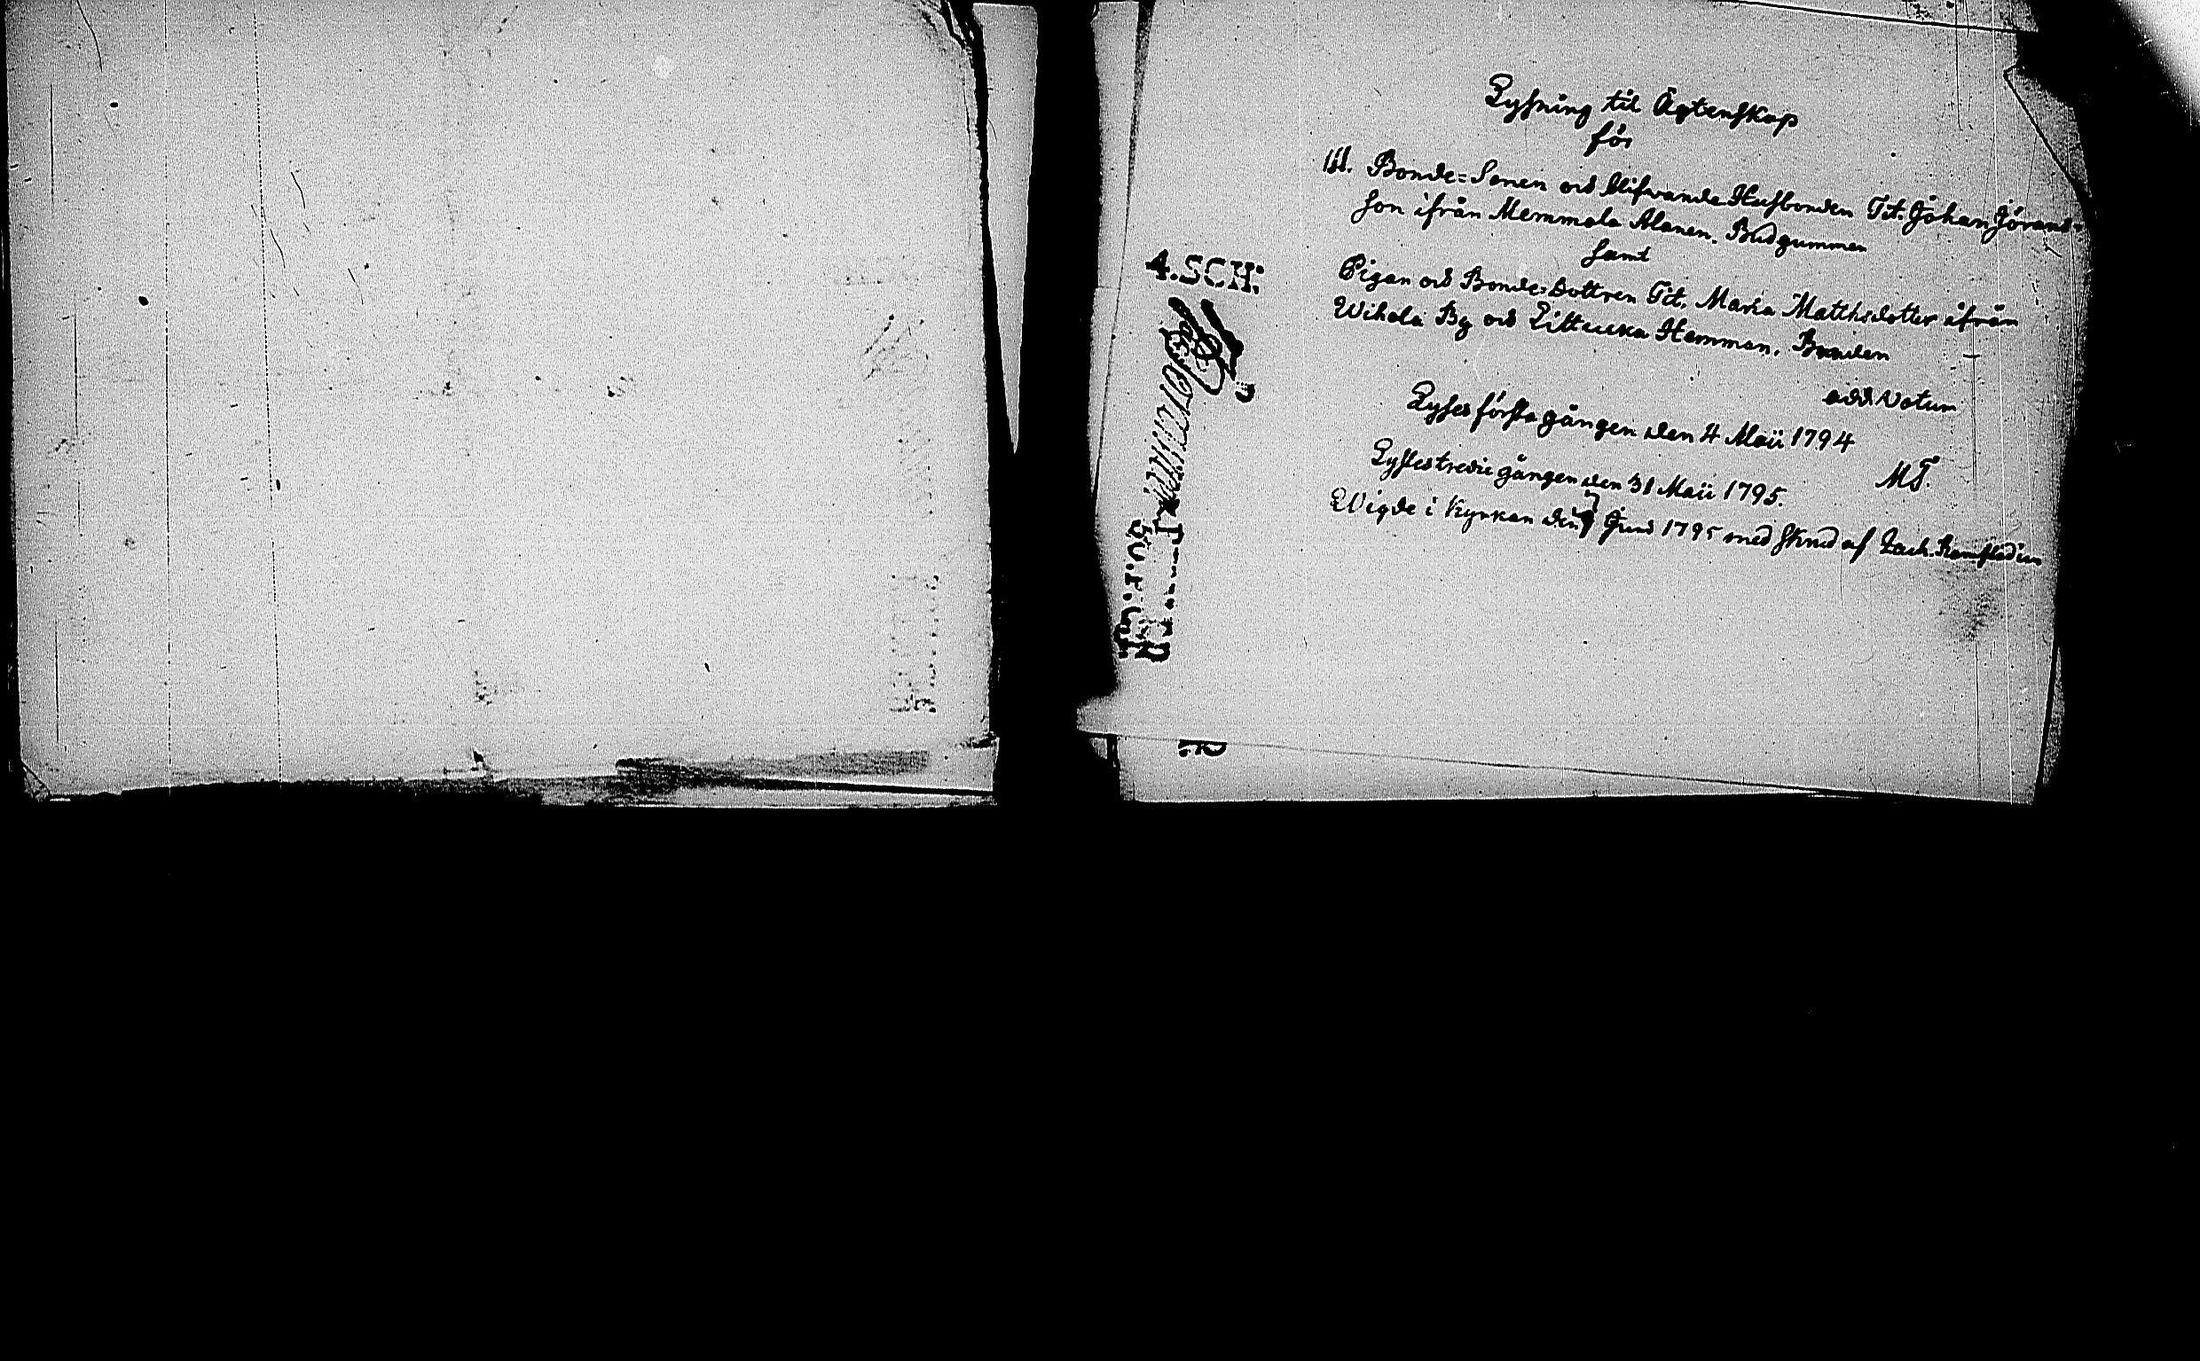 Lysning til Ägtenskap
för
Bonde=Sonen och blifvande Husbonden Tit. Johan Jörans-
son ifrån Memmala Alanen, Brudgummen
samt
Pigan och Bonde=dottren Tit. Maria Matthsdotter ifrån
Wihola By och Hemman, Bruden
add votum
Lyses första gången den 4 Maii 1794
MG.
Lystes tredie gången den 31 Maii 1795.
Wigde i Kyrkan den 7 Junii 1795 med af Zach.
4.SCH: